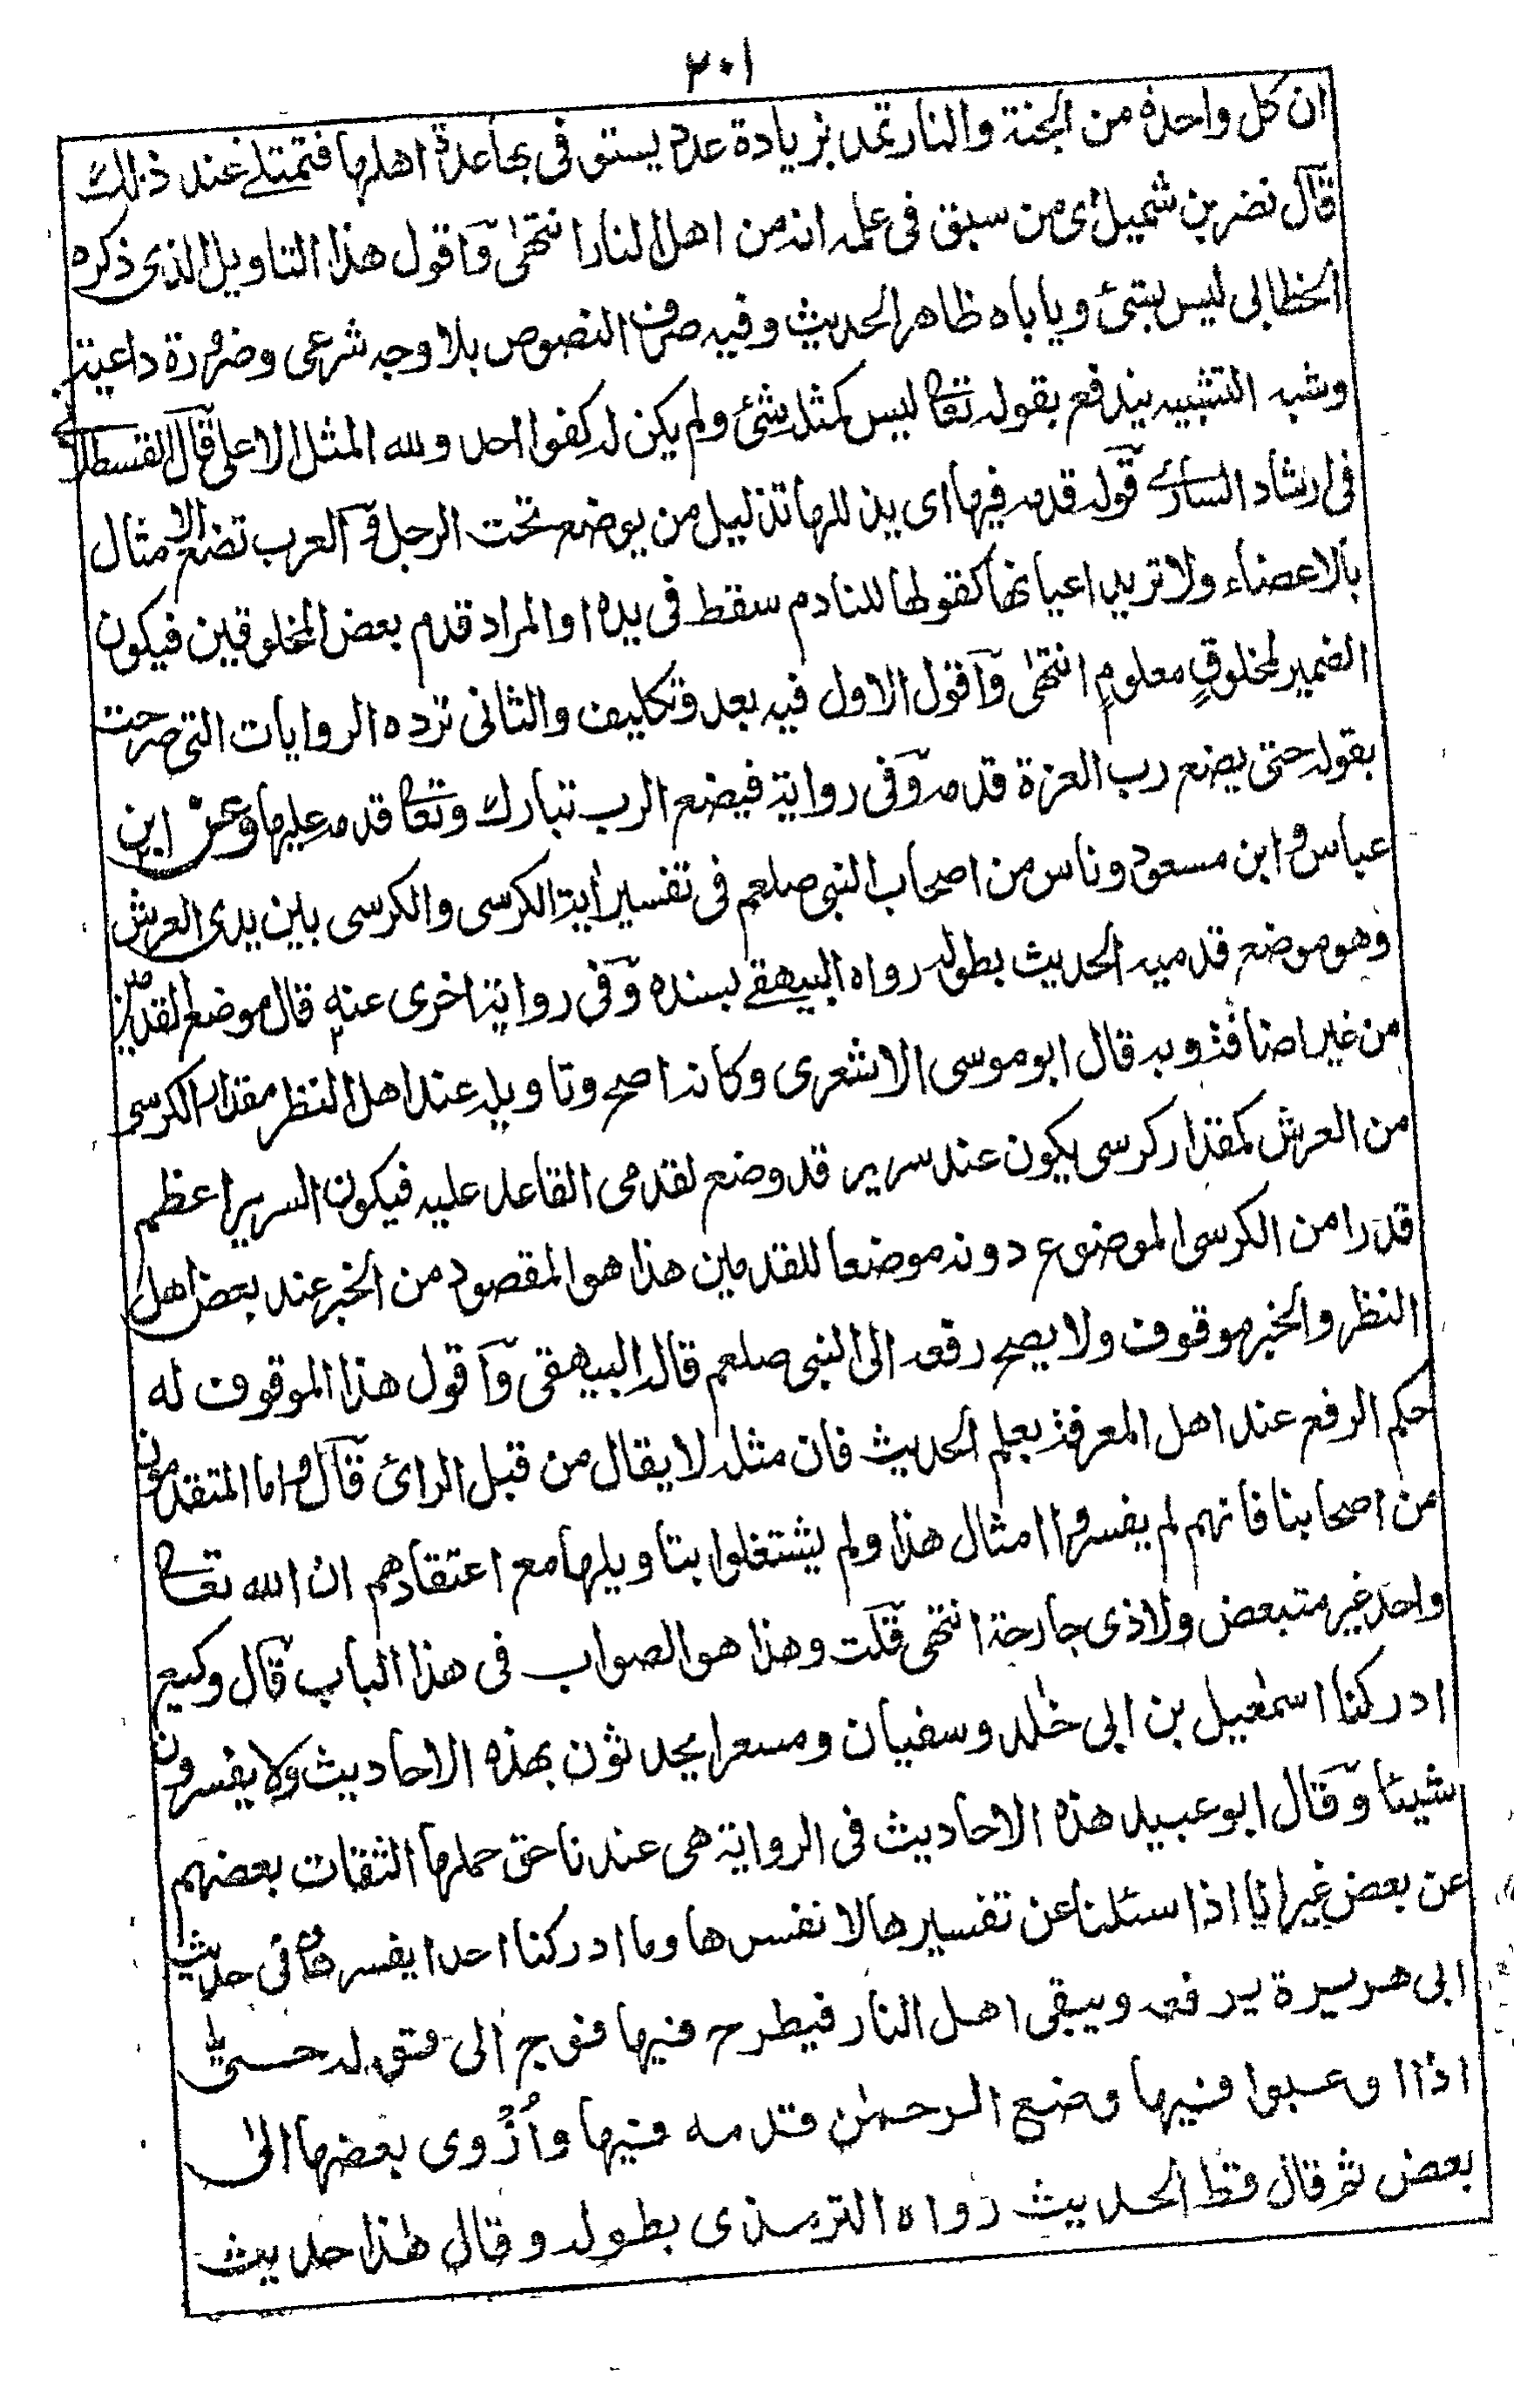 ٢٠١
ان كل واحدة من الجنة والنار تمد بزيادة عدد يستوفى بها عدة اهلها فتمتلئ عند ذلك
قال نضر بن شميل اى من سبق فى علمه انه من اهل النار انتهى واقول هذا التاويل الذى ذكره
الخطابى ليس بشئ وياباه ظاهر الحديث وفيه صرف النصوص بلا وجه شرعى وضرورة داعية
وشبه التشبيه يندفع بقوله تعا ليس كمثله شئ ولم يكن له كفوا احد ولله المثل الاعلى قال القسطلانى
فى ارشاد السارى قوله قدمه فيها اى يذللها تذليل من يوضع تحت الرجل والعرب تضع الامثال
بالاعضاء ولا تريد اعيانها كقولها للنادم سقط فى يده او المراد قدم بعض المخلوقين فيكون
الضمير لمخلوقٍ معلومٍ انتهى واقول الاول فيه بعد وتكليف والثانى ترده الروايات التى صرحت
بقوله حتى يضع رب العزة قدمه وفى رواية فيضع الرب تبارك وتعا قدمه عليها وعن ابن
عباس وابن مسعود وناس من اصحاب النبى صلعم فى تفسير اية الكرسى والكرسى بين يدى العرش
وهو موضع قدميه الحديث بطوله رواه البيهقى بسنده وفى رواية اخرى عنه قال موضع القدمين
من غير اضافة وبه قال ابو موسى الاشعرى وكانه اصح وتاويله عند اهل النظر مقدار الكرسى
من العرش كمقدار كرسى يكون عند سرير قد وضع لقدمى القاعد عليه فيكون السرير اعظم
قدرا من الكرسى الموضوع دونه موضعا للقدمين هذا هو المقصود من الخبر عند بعض اهل
النظر والخبر موقوف ولا يصح رفعه الى النبى صلعم قاله البيهقى واقول هذا الموقوف له
حكم الرفع عند اهل المعرفة بعلم الحديث فان مثله لا يقال من قبل الرائ قال واما المتقدمون
من اصحابنا فانهم لم يفسروا امثال هذا ولم يشتغلوا بتاويلها مع اعتقادهم ان الله تعا
واحد غير متبعض ولا ذى جارحة انتهى قلت وهذا هو الصواب فى هذا الباب قال وكيع
ادركنا اسمٰعيل بن ابى خٰلد وسفيان ومسعرا يحدثون بهذه الاحاديث ولا يفسرون
شيئا وقال ابو عبيد هذه الاحاديث فى الرواية هى عندنا حق حملها الثقات بعضهم
عن بعض غير انا اذا سئلنا عن تفسيرها لا نفسرها وما ادركنا احدا يفسرها وفى حديث
ابى هريرة يرفعه ويبقى اهل النار فيطرح فيها فوج الى قوله حتى
اذا اوعبوا فيها وضع الرحمٰن قدمه فيها وأُزْوى بعضها الىٰ
بعض ثم قال قط الحديث رواه الترمذى بطوله وقال هٰذا حديث